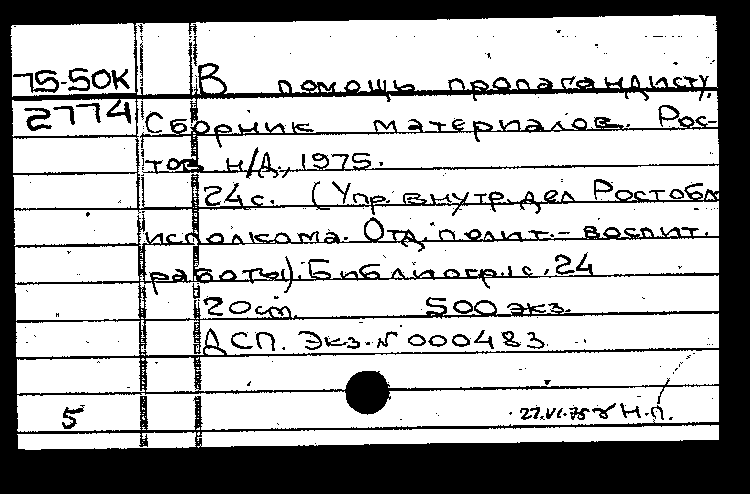 75-50К В помощь пропагандисту.
2774 Сборник материалов. Рос-
тов н/Д., 1975.
24с. (Упр. внутр. дел Ростобл
исполкома. Отд. полит.- воспит.
работы). Библиогр.: с. 24
20см. 500 экз.
ДСП. Экз. № 000483
5 27.VI.75 Н.П.